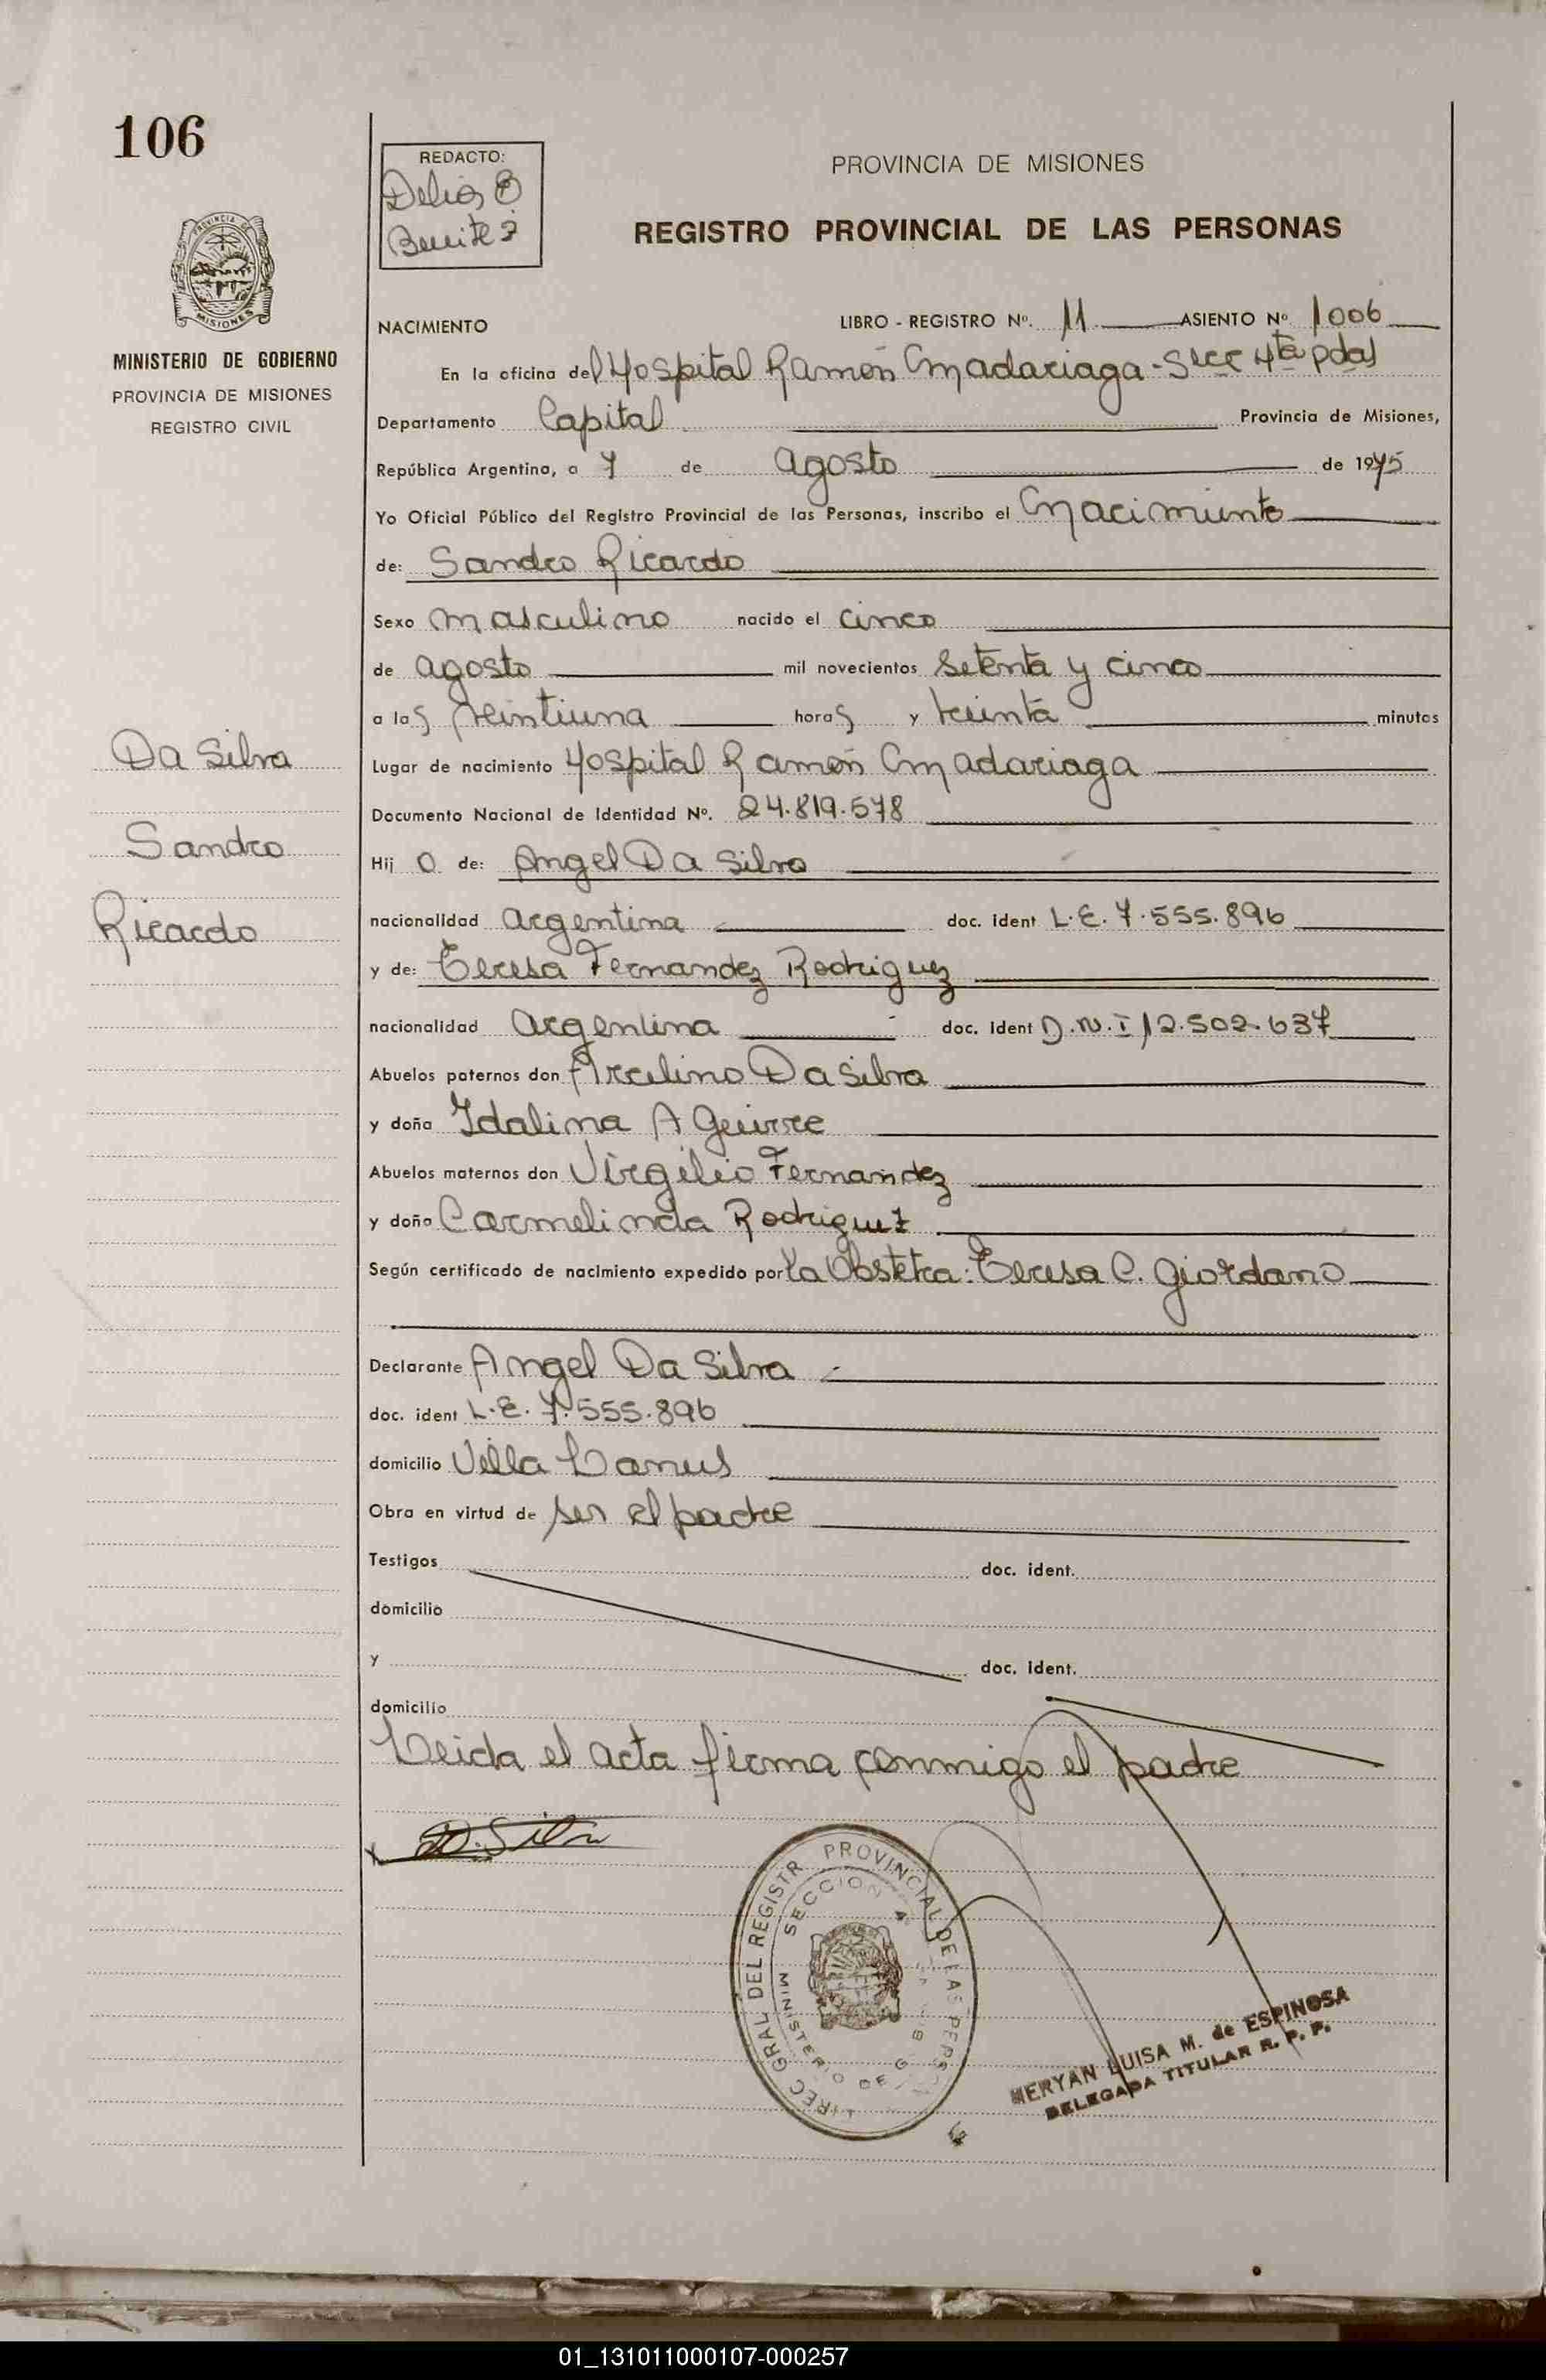 106
REDACTO:
Delia B
Benitez
PROVINCIA DE MISIONES
REGISTRO PROVINCIAL DE LAS PERSONAS
PROVINCIA DE
MISIONES
MINISTERIO DE GOBIERNO
PROVINCIA DE MISIONES
REGISTRO CIVIL
NACIMIENTO
LIBRO - REGISTRO Nº. 11 ASIENTO Nº 1006
En la oficina del Hospital Ramón Madariaga - Secc 4ta pdas
Departamento Capital Provincia de Misiones,
República Argentina, a 7 de agosto de 1975
Yo Oficial Público del Registro Provincial de las Personas, inscribo el Nacimiento
de: Sandro Ricardo
Sexo masculino nacido el cinco
de agosto mil novecientos setenta y cinco
a las veintiuna horas y treinta minutos
Lugar de nacimiento Hospital Ramón Madariaga
Documento Nacional de Identidad Nº. 24.819.578
Hij o de: Angel Da Silva
nacionalidad argentina doc. ident L.E. 7.555.896
y de: Teresa Fernandez Rodriguez
nacionalidad argentina doc. ident D.N.I 12.502.637
Abuelos paternos don Arcelino Da Silva
y doña Idalina Aguirre
Abuelos maternos don Virgilio Fernandez
y doña Carmelinda Rodriguez
Según certificado de nacimiento expedido por la Obstetra: Teresa C. Giordano
Declarante Angel Da Silva
doc. ident L.E. 7.555.896
domicilio Villa Lanus
Obra en virtud de ser el padre
Testigos doc. ident.
domicilio
y doc. ident.
domicilio
Leida el acta firma conmigo el padre
Da Silva
Sandro
Ricardo
D. Silva
DIREC GRAL DEL REGISTR PROVINCIAL DE LAS PERS
SECCION 4ª
MINISTERIO DE
MERYAN LUISA M. de ESPINOSA
DELEGADA TITULAR R. P. P.
01_131011000107-000257